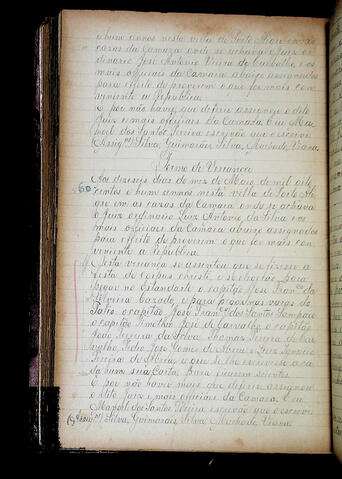 e hum annos nesta villa de Porto Alegre em as
cazas da Camara onde se achava o Juiz or-
dinario José Antonio Vieira de Carvalho e os
mais officiais da Camara abaixo assignados
para effeito de proverem o que for mais con-
veniente a Republica.
E por não haver que deferir assignou o dito
Juiz e mais officiais da Camara. E eu Ma-
noel dos Santos Pereira escrivão que o escrevi
(Assig.os) Silva, Guimarães, Silva, Machado, Viana.
Termo de Vereança
Aos dezeseis dias do mez de Maio de mil oito
centos e hum annos nesta villa de Porto Ale-
gre em as cazas da Camara onde se achava
o Juiz ordinario Luiz Antonio da Silva e os
mais officiais da Camara abaixo assignados
para effeito de proverem o que for mais con-
veniente a Republica.
Nesta vereança se assentou que se fizesse a
festa do Corpus Christi e se elegerão para
pegar no Estandarte o capitão José Fran.co da
Silveira Cazado, e para pegar nas varas do
Palio o capitão José Fran.co dos Santos Sampaio
o capitão Timotheo José de Carvalho, o capitão
João Pereira da Silva, Thomaz Pereira de Car-
valho, José Gomes de
Pereira de que se lhe escrevesse a ca-
da hum sua Carta para ficarem scientes.
E por não haver mais que deferir assignou
o dito Juiz e mais officiais da Camara. E eu
Manoel dos Santos Pereira escrivão que o escrevi
(Assig.os) Silva, Guimarães, Silva, Machado, Viana